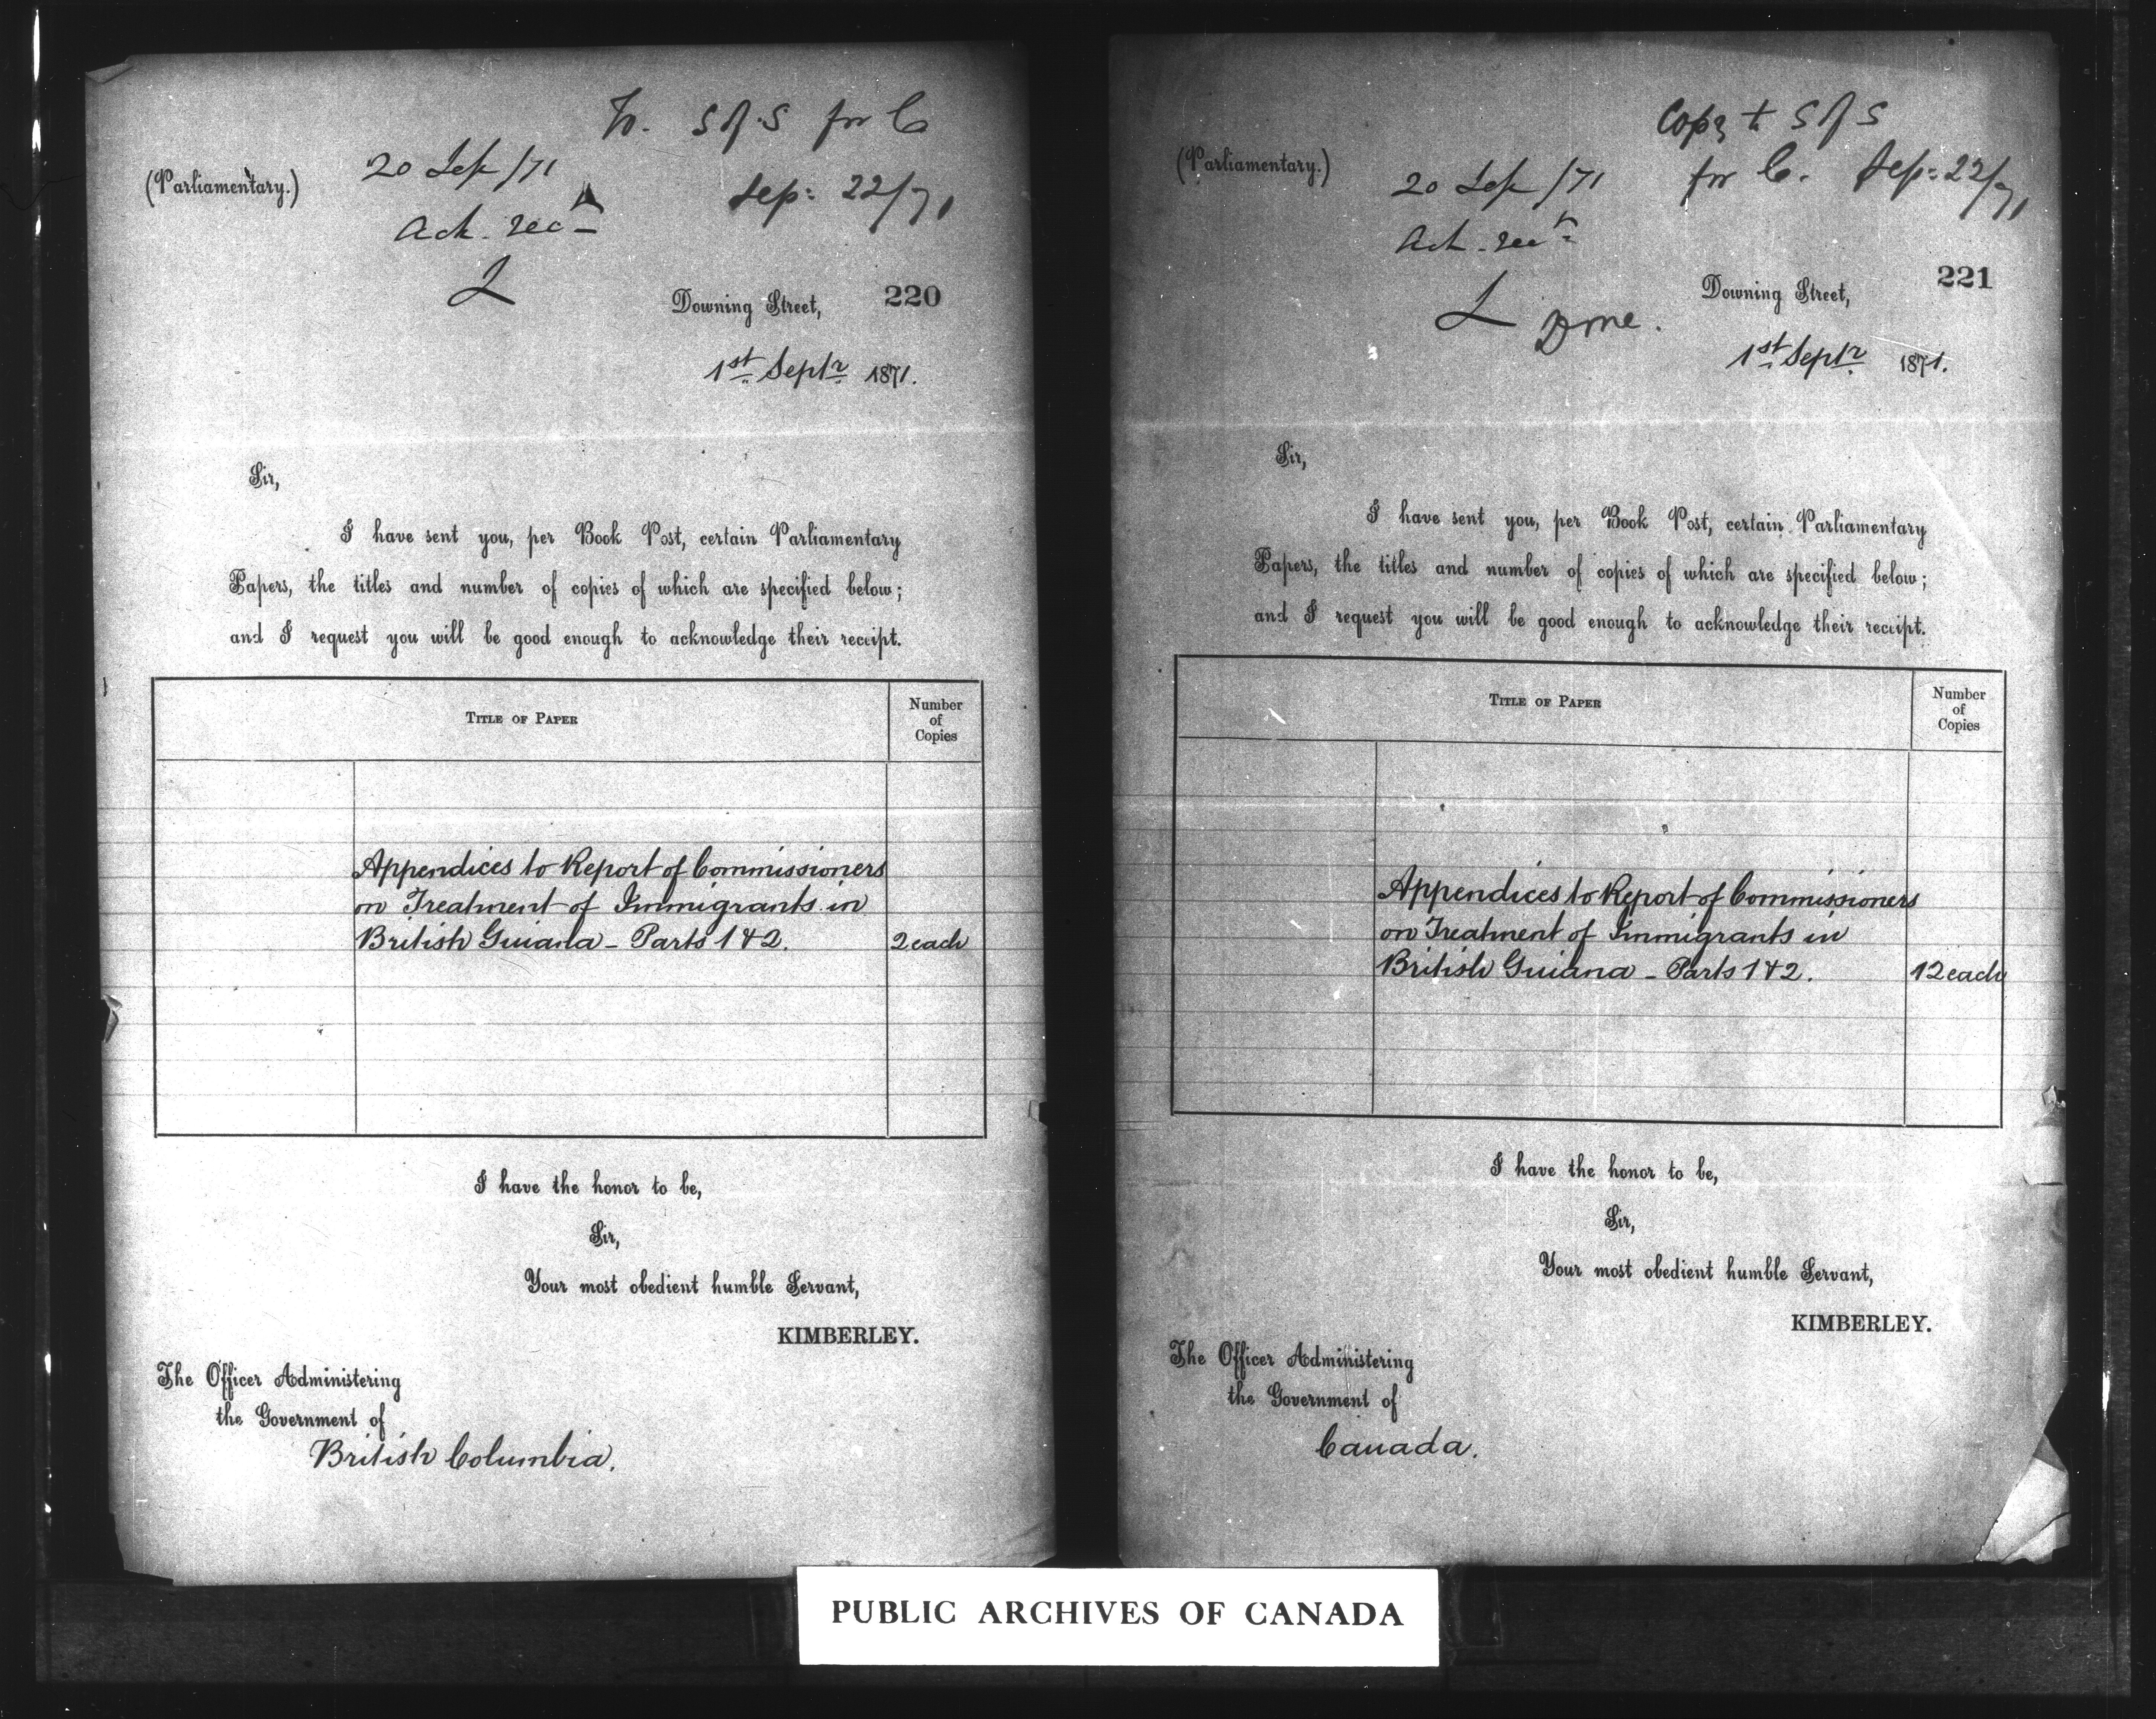 To. S of S for C
(Parliamentary.)
20 Sep /71
Sep: 22/71
Ack. rect
L
Downing Street,
220
1st Septr 1871.
Sir,
I have sent you, per Book Post, certain Parliamentary
Papers, the titles and number of copies of which are specified below;
and I request you will be good enough to acknowledge their receipt.
TITLE OF PAPER
Number
of
Copies
Appendices to Report of Commissioners
on Treatment of Immigrants in
British Guiana - Parts 1 & 2. 2 each
I have the honor to be,
Sir,
Your most obedient humble Servant,
KIMBERLEY.
The Officer Administering
the Government of
British Columbia.
Copy to S of S
for C. Sep: 22/71
(Parliamentary.)
20 Sep /71
Ack. rect
L Done.
Downing Street,
221
1st Septr 1871.
Sir,
I have sent you, per Book Post, certain Parliamentary
Papers, the titles and number of copies of which are specified below;
and I request you will be good enough to acknowledge their receipt.
TITLE OF PAPER
Number
of
Copies
Appendices to Report of Commissioners
on Treatment of Immigrants in
British Guiana - Parts 1 & 2. 12 each
I have the honor to be,
Sir,
Your most obedient humble Servant,
KIMBERLEY.
The Officer Administering
the Government of
Canada.
PUBLIC ARCHIVES OF CANADA